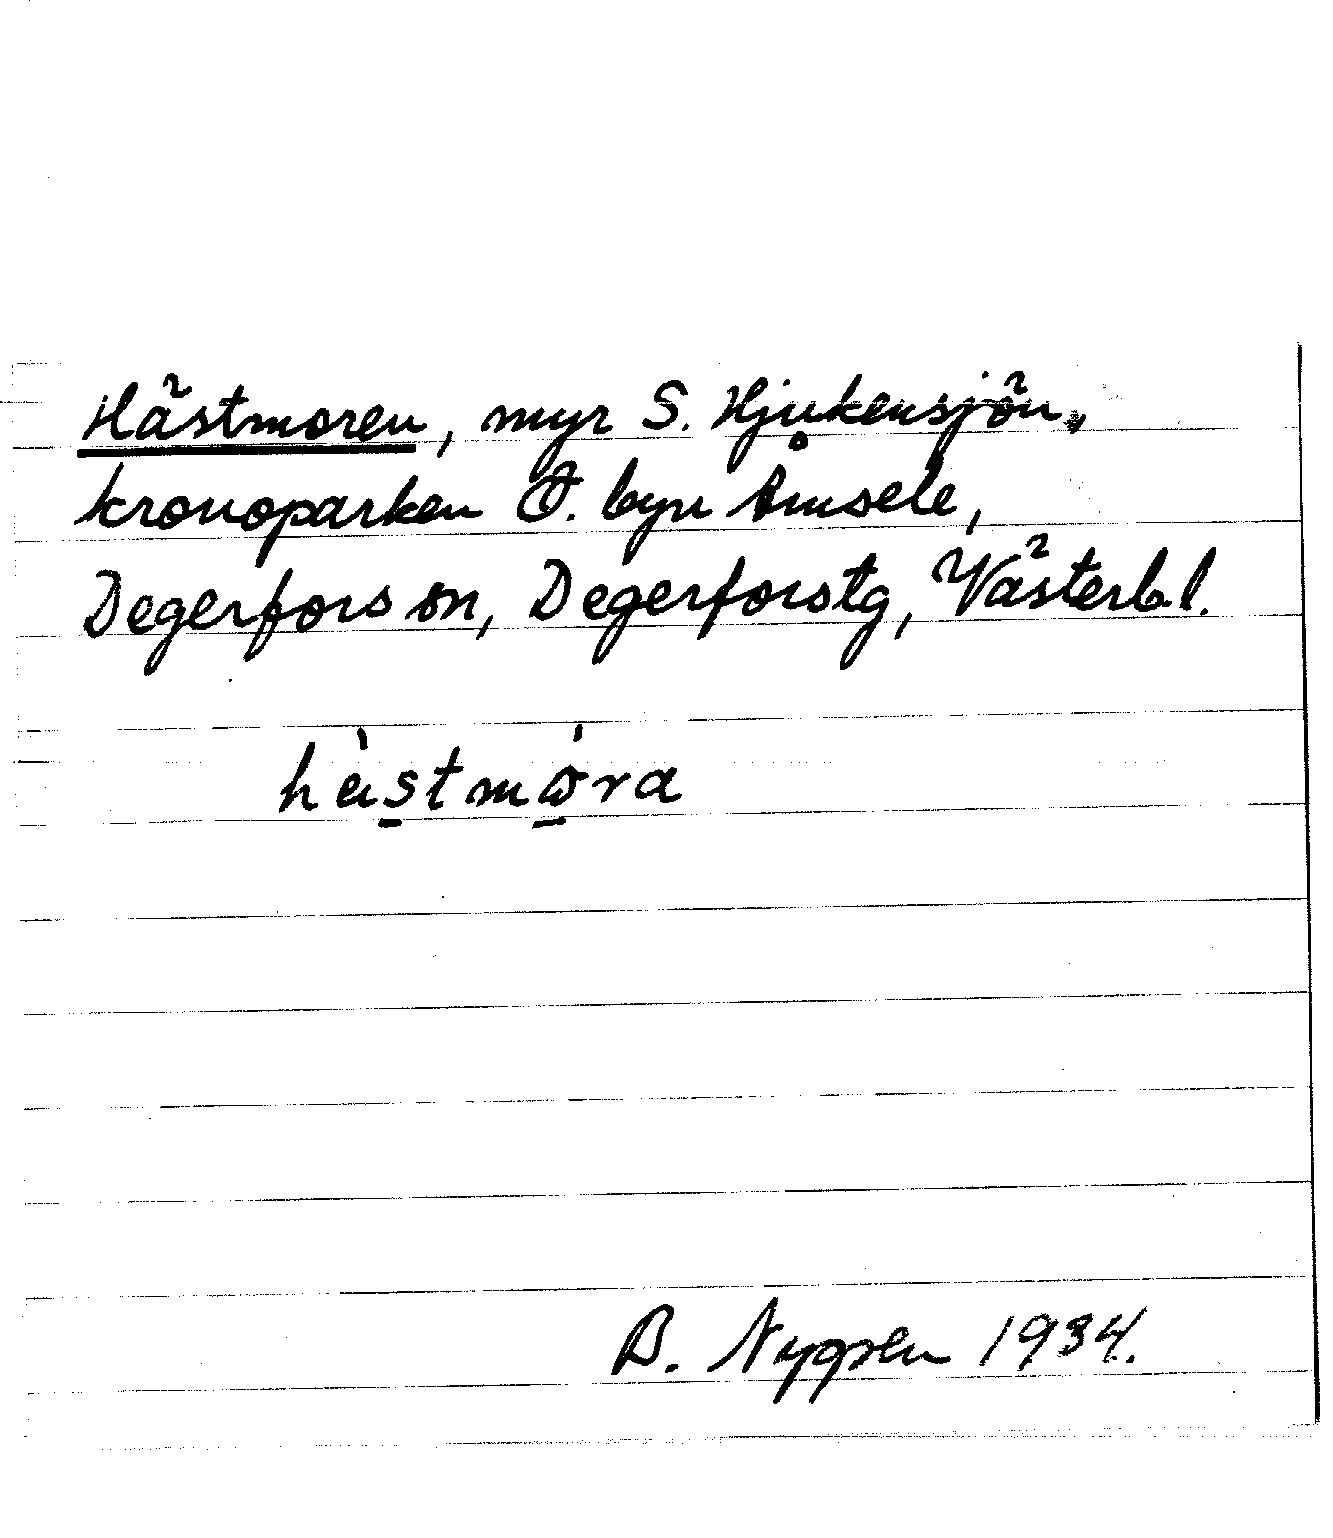 Hästmoren, myr S. Hjukensjön,
kronoparken Ö. byn Åmsele,
Degerfors sn, Degerforstg, Västerb.l.
hàstmǿra
B. Nygren 1934.